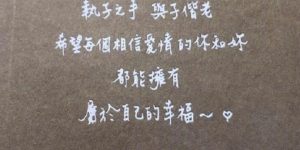 執子之手 與子偕老
希望每個相信愛情的你和妳
都能擁有
屬於自己的幸福～♡